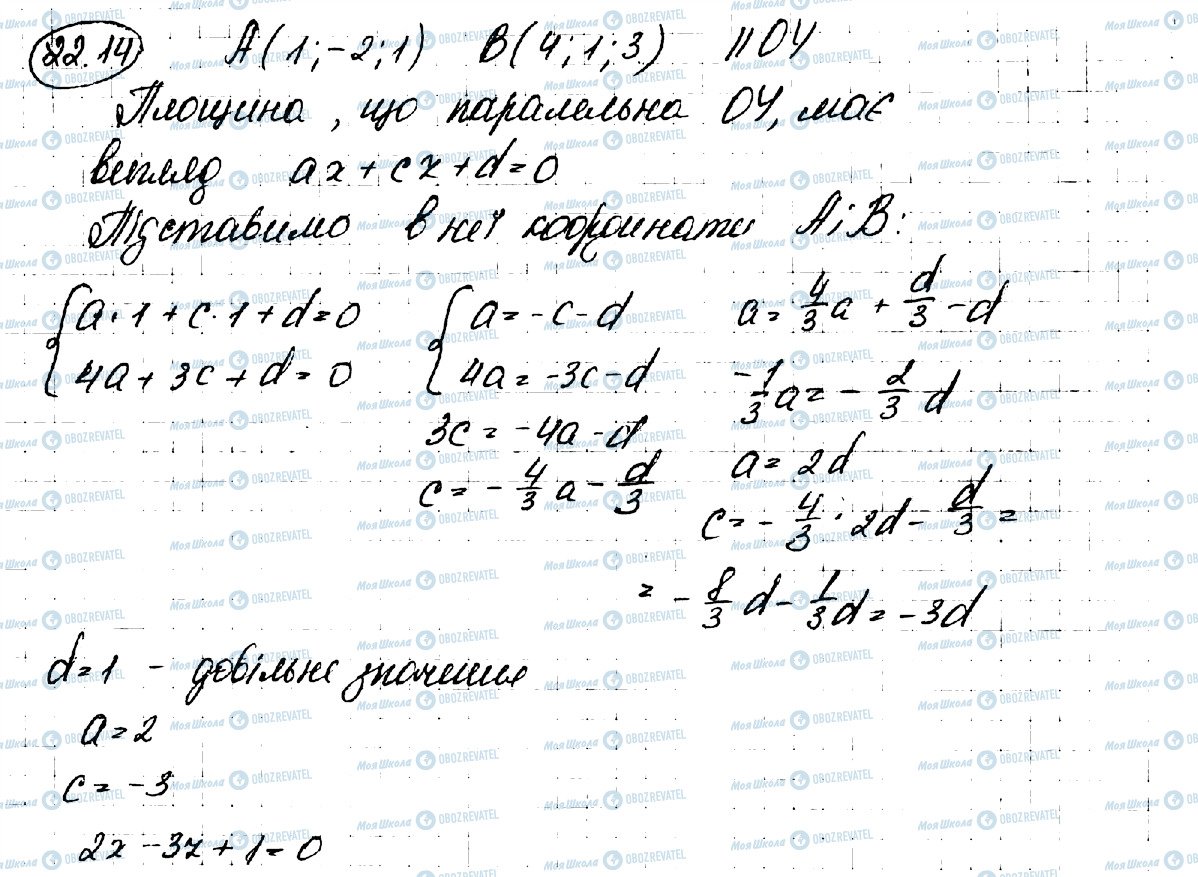 22.14 A(1;-2;1) B(4;1;3) ||OY
Площина, що паралельна OY, має
вигляд ax + cx + d = 0
Підставимо в неї координати A і B:
{ a·1 + c·1 + d = 0
4a + 3c + d = 0
{ a = -c - d
4a = -3c - d
3c = -4a - d
c = -4/3 a - d/3
a = 4/3 a + d/3 - d
-1/3 a = -2/3 d
a = 2d
c = -4/3 · 2d - d/3 =
= -8/3 d - 1/3 d = -3d
d = 1 - довільне значення
a = 2
c = -3
2x - 3z + 1 = 0
Моя Школа OBOZREVATEL